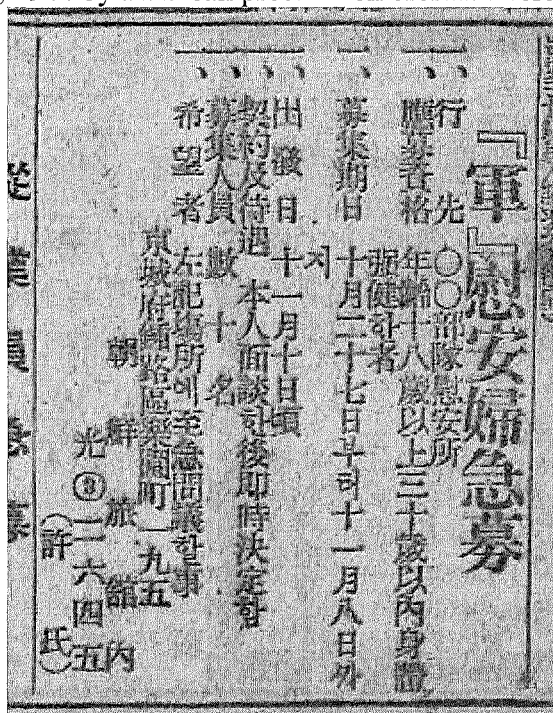 『軍』慰安婦急募
一、行先 〇〇部隊慰安所
一、應募資格 年齡十八歲以上三十歲以內身體
强健한者
一、募集期日 十月二十七日부터十一月八日ᄭᅡ
지
一、出發日 十一月十日頃
一、契約及待遇 本人面談한後即時決定함
一、募集人員 數十名
一、希望者 左記場所에至急問議할事
京城府鍾路區樂園町一九五
朝鮮旅館內
光③二六四五
(許氏)
從業員急募